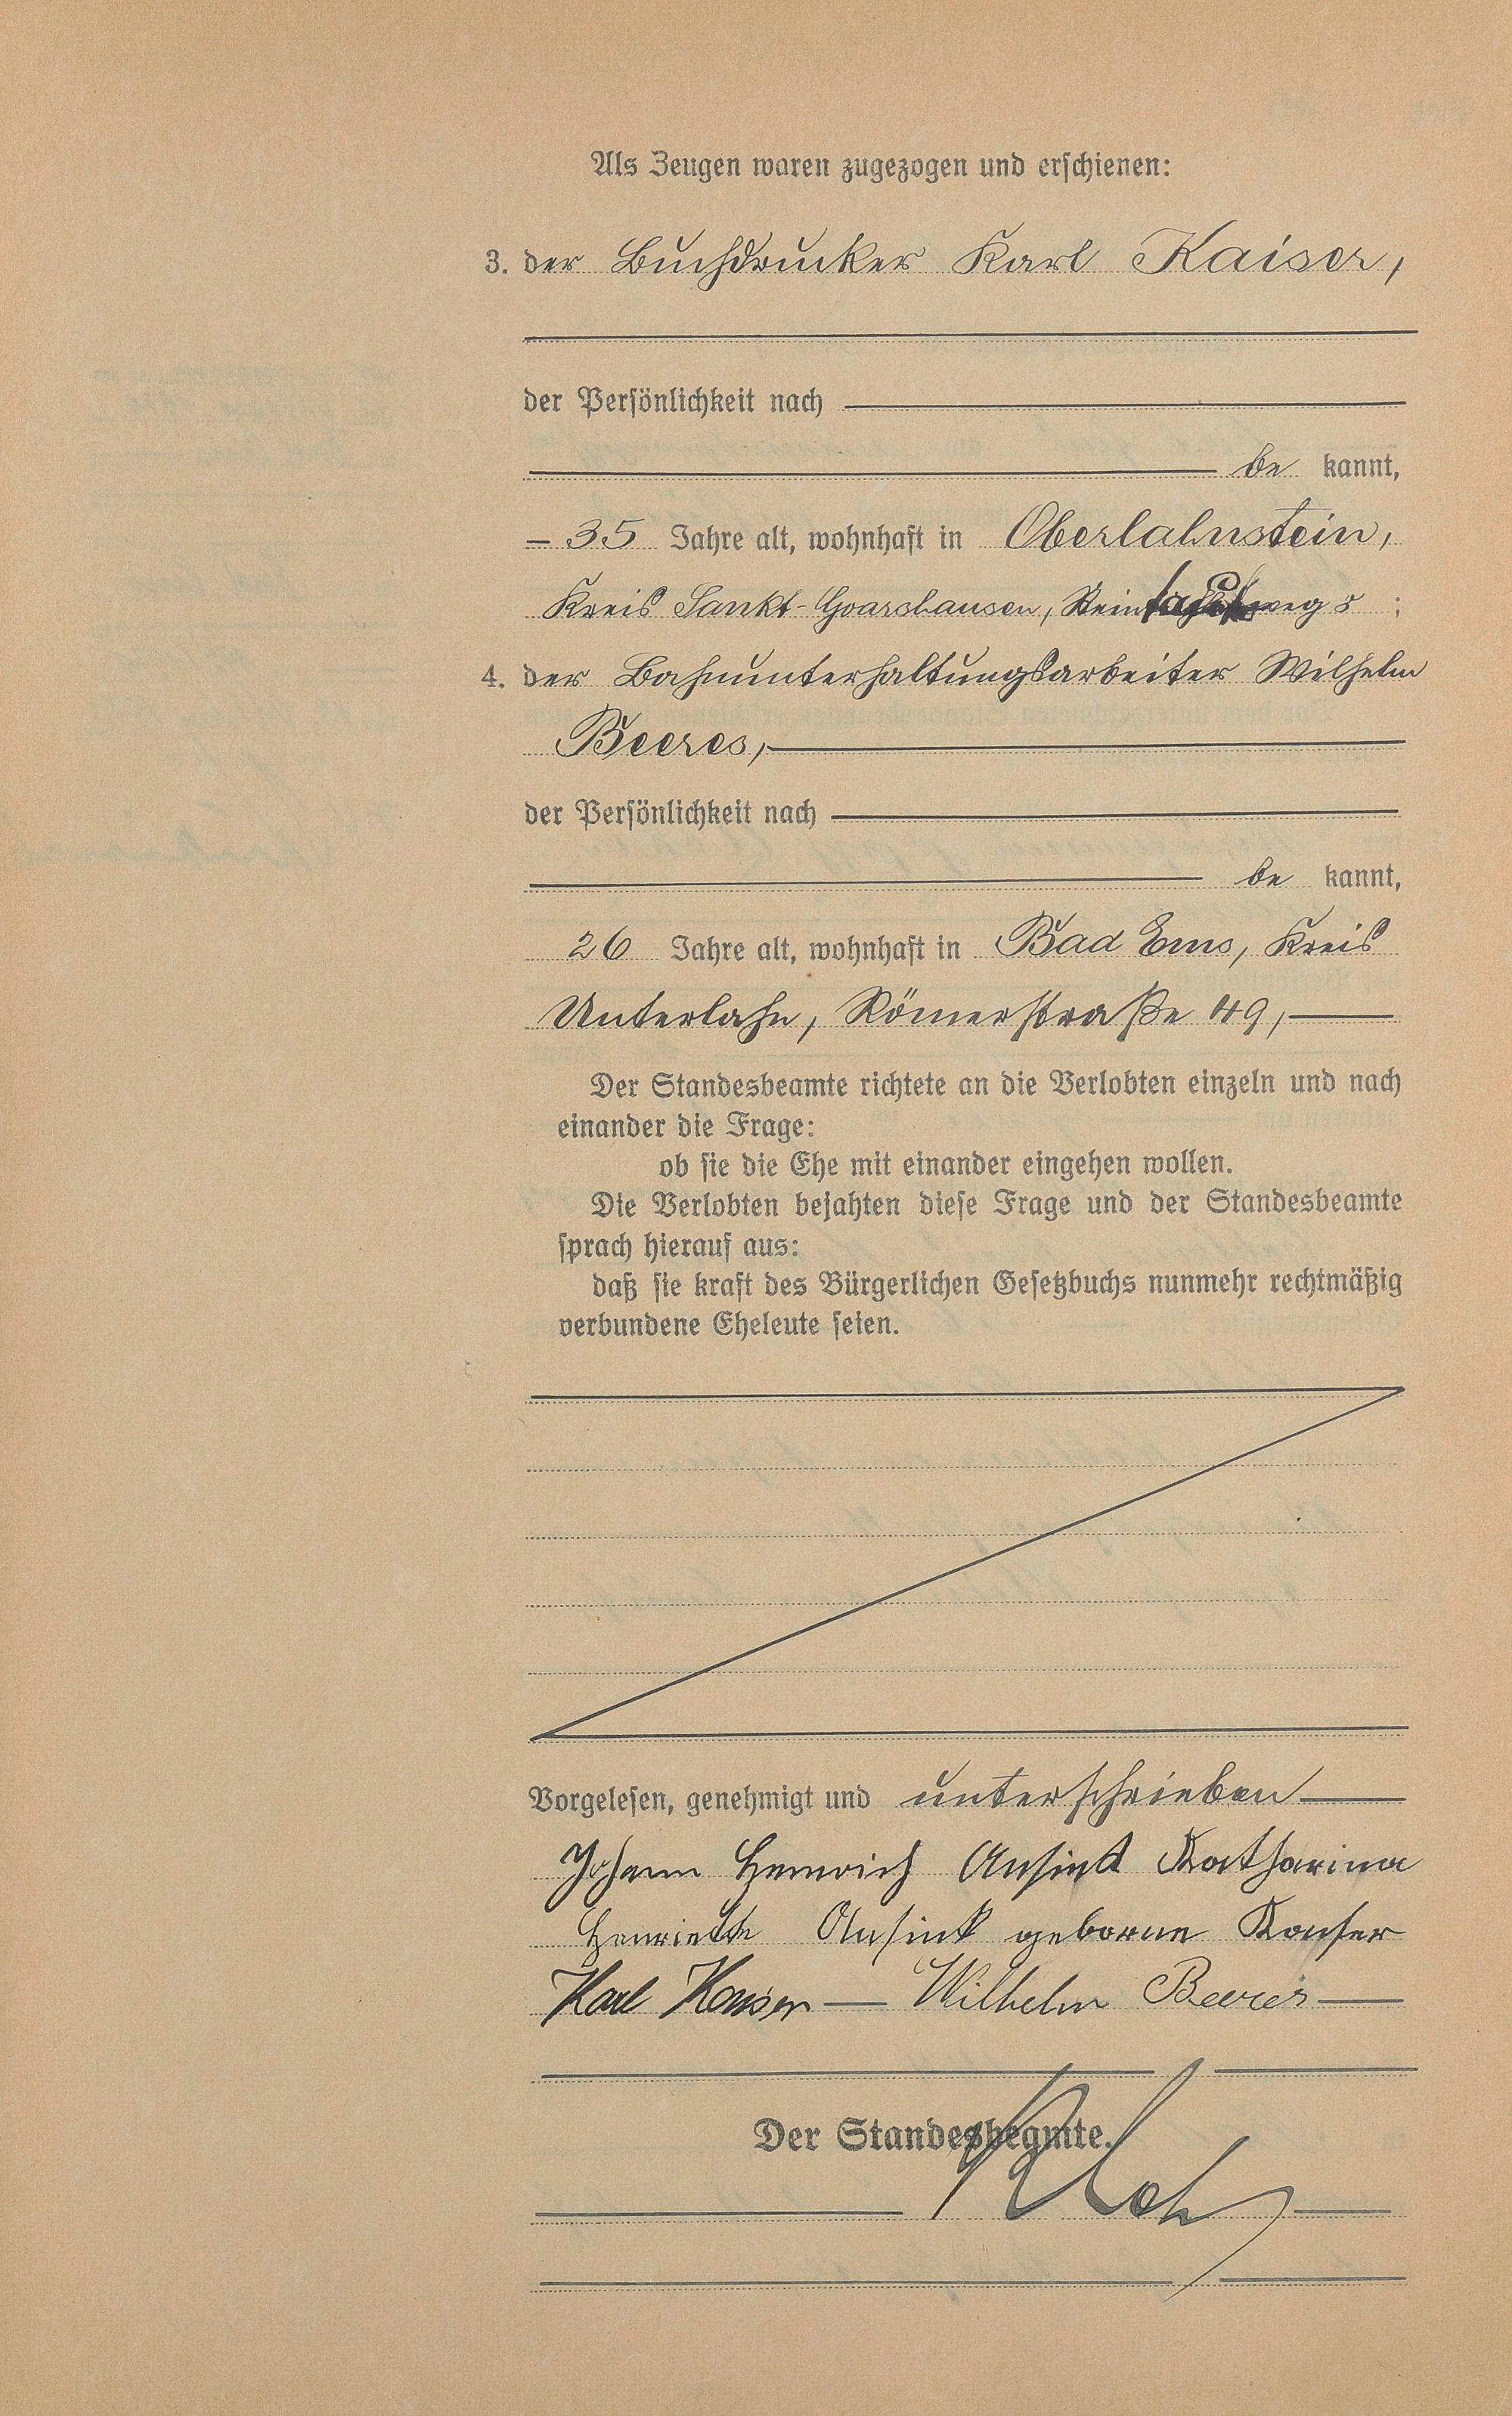 Als Zeugen waren zugezogen und erschienen:
3. der Buchdrucker Karl Kaiser,
der Persönlichkeit nach
be kannt,
35 Jahre alt, wohnhaft in Oberlahnstein,
Kreis Sankt-Goarshausen,
4. der Bahnunterhaltungsarbeiter Wilhelm
Beeres,
der Persönlichkeit nach
be kannt,
26 Jahre alt, wohnhaft in Bad Ems, Kreis
Unterlahn, Römerstraße 49,
Der Standesbeamte richtete an die Verlobten einzeln und nach
einander die Frage:
ob sie die Ehe mit einander eingehen wollen.
Die Verlobten bejahten diese Frage und der Standesbeamte
sprach hierauf aus:
daß sie kraft des Bürgerlichen Gesetzbuchs nunmehr rechtmäßig
verbundene Eheleute seien.
Vorgelesen, genehmigt und unterschrieben
Johann Heinrich Ansink Katharina
Henriette Ansink geborne
Karl Wilhelm Beeres
Der Standesbeamte.